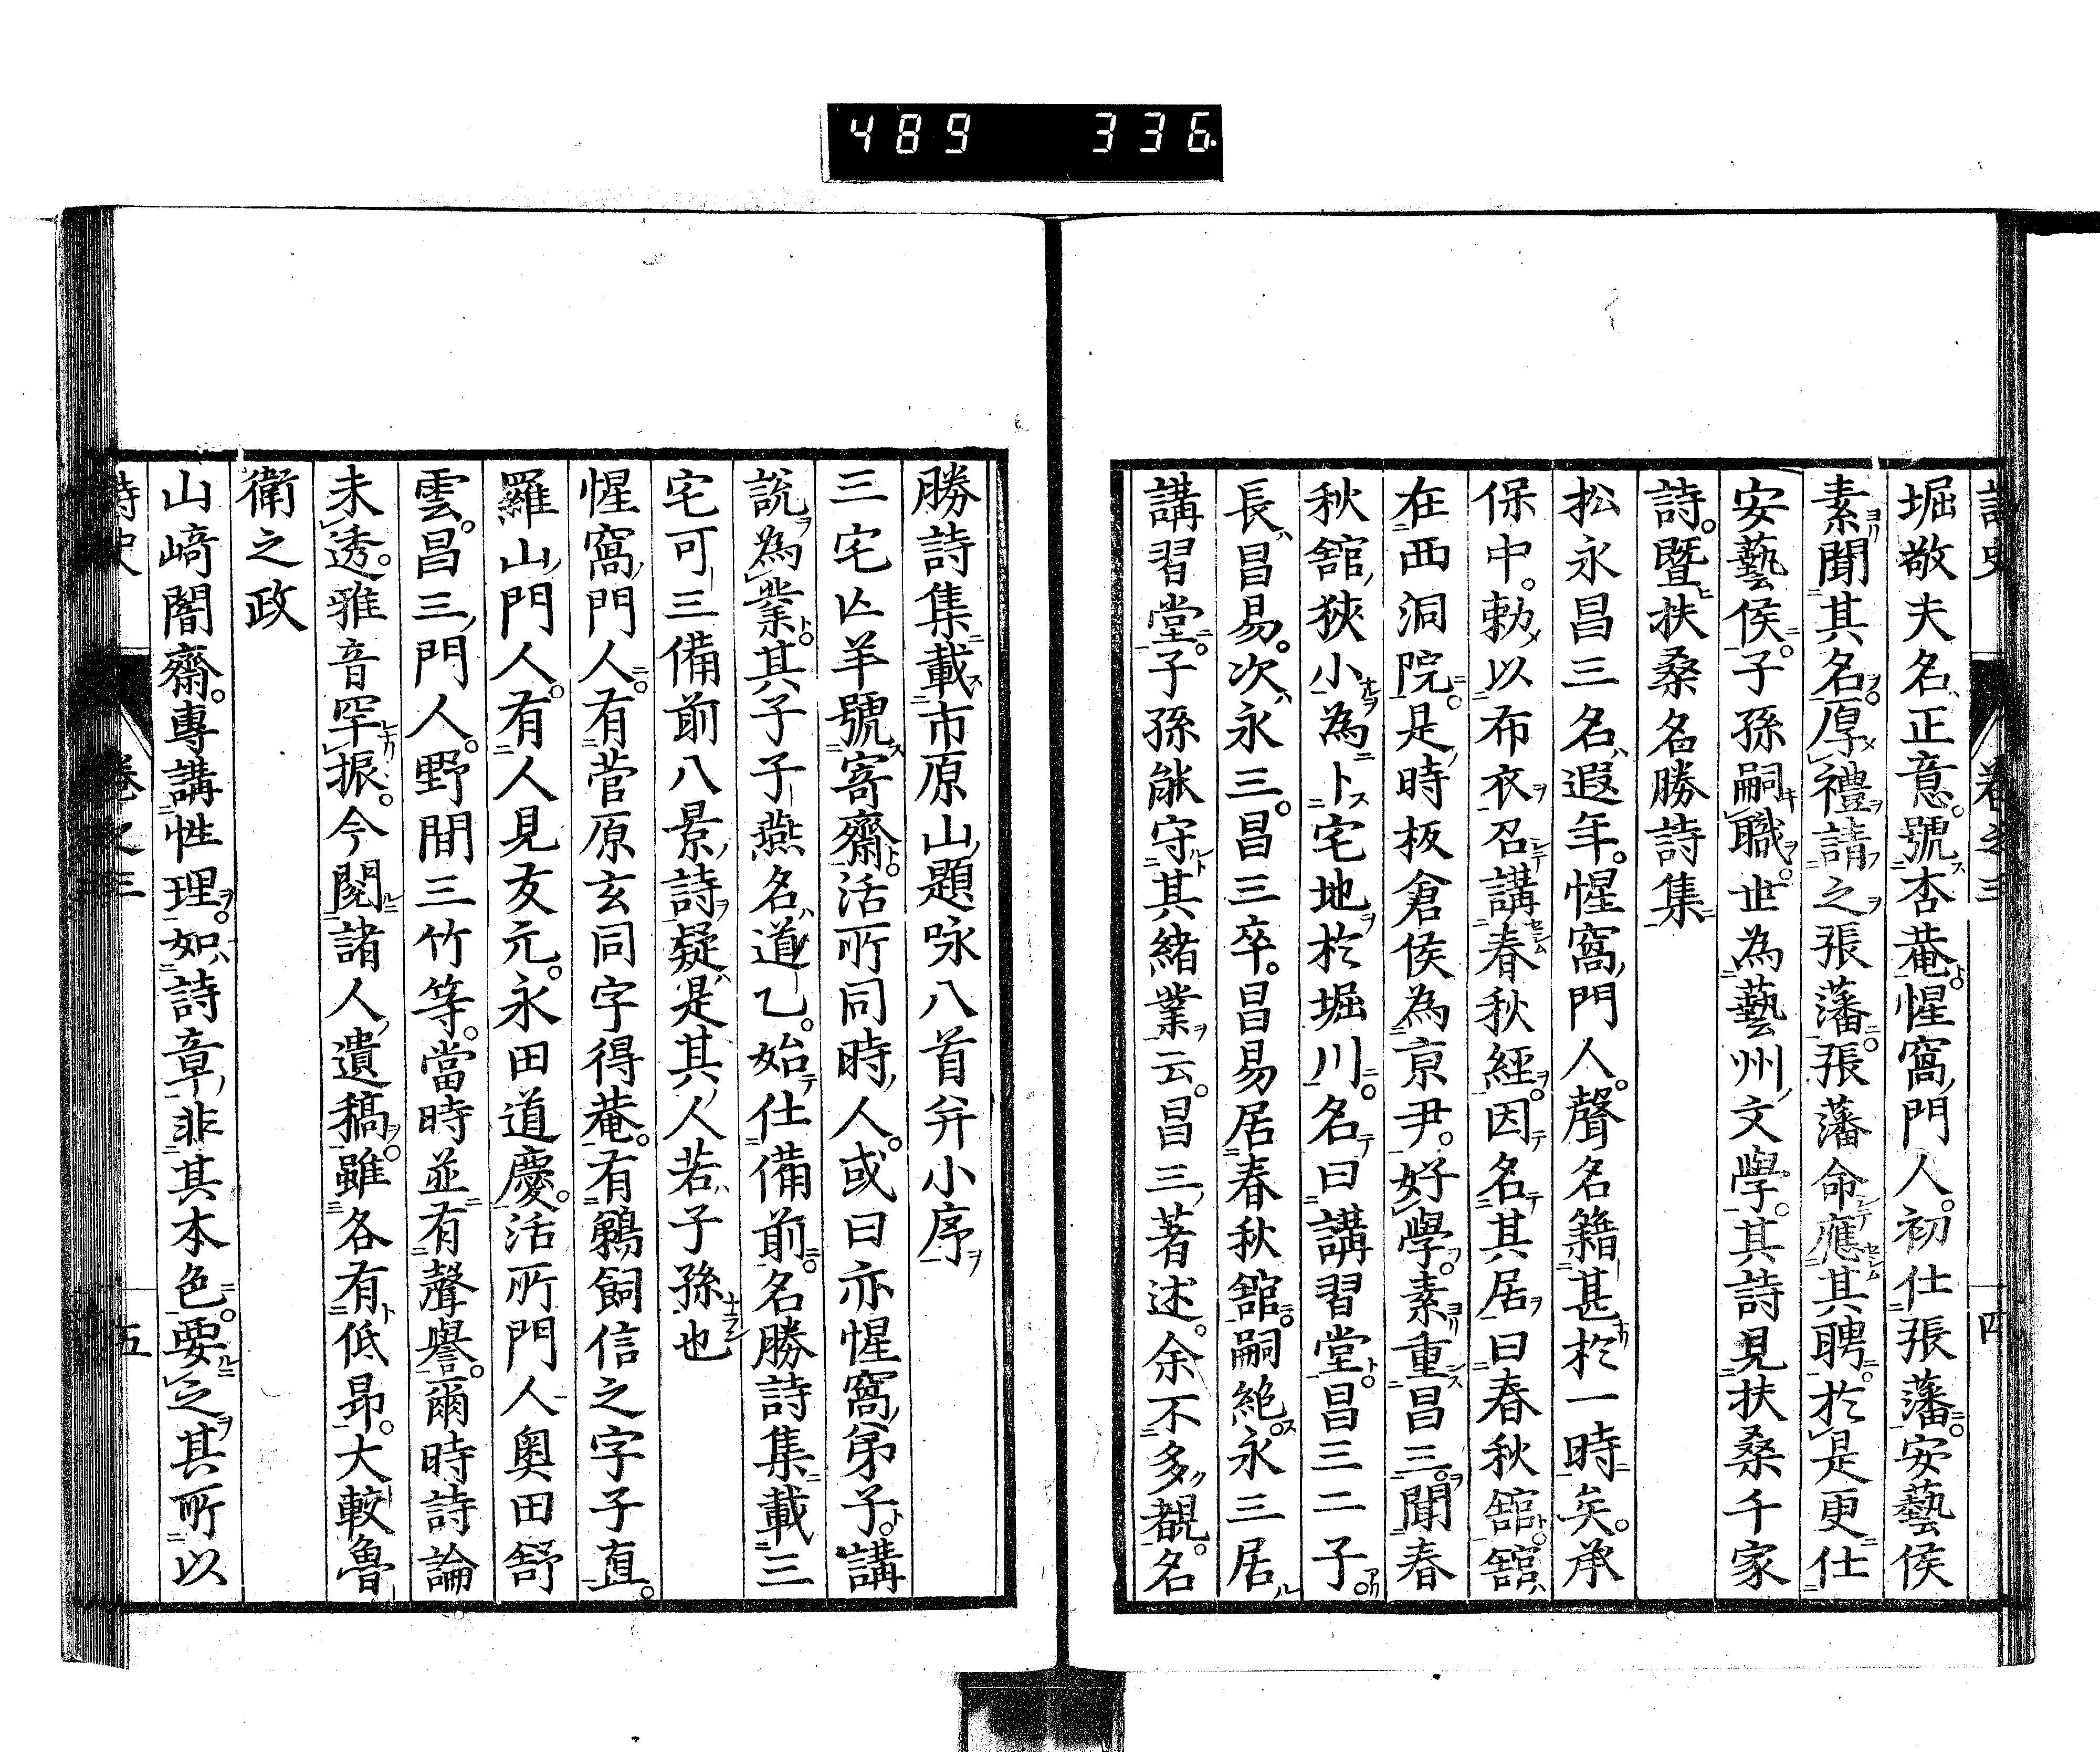 489 336
詩史 卷之三 四
堀敬夫名正意。號杏菴。惺窩門人。初仕張藩。安藝侯
素聞其名。厚禮請之張藩。張藩命應其聘。於是更仕
安藝侯。子孫嗣職。世為藝州文學。其詩見扶桑千家
詩。暨扶桑名勝詩集
松永昌三名遐年。惺窩門人。聲名籍甚於一時矣。承
保中。勅以布衣召講春秋經。因名其居曰春秋館。館
在西洞院。是時板倉侯為京尹。好學。素重昌三。聞春
秋館狹小為卜宅地於堀川。名曰講習堂。昌三二子。
長昌易。次永三。昌三卒。昌易居春秋館。嗣絕。永三居
講習堂。子孫能守其緒業云。昌三著述。余不多覩。名
勝詩集載市原山題咏八首并小序
三宅亡羊號寄齋。活所同時人。或曰亦惺窩弟子。講
說為業。其子子燕名道乙。始仕備前。名勝詩集載三
宅可三備前八景詩。疑是其人若子孫也
惺窩門人。有菅原玄同字得菴。有鵜飼信之字子直。
羅山門人。有人見友元。永田道慶。活所門人奧田舒
雲。昌三門人。野間三竹等。當時並有聲譽。爾時詩論
未透。雅音罕振。今閱諸人遺稿。雖各有低昂。大較魯
衛之政
山﨑闇齋。專講性理。如詩章非其本色。要之其所以
詩史 卷之三 五